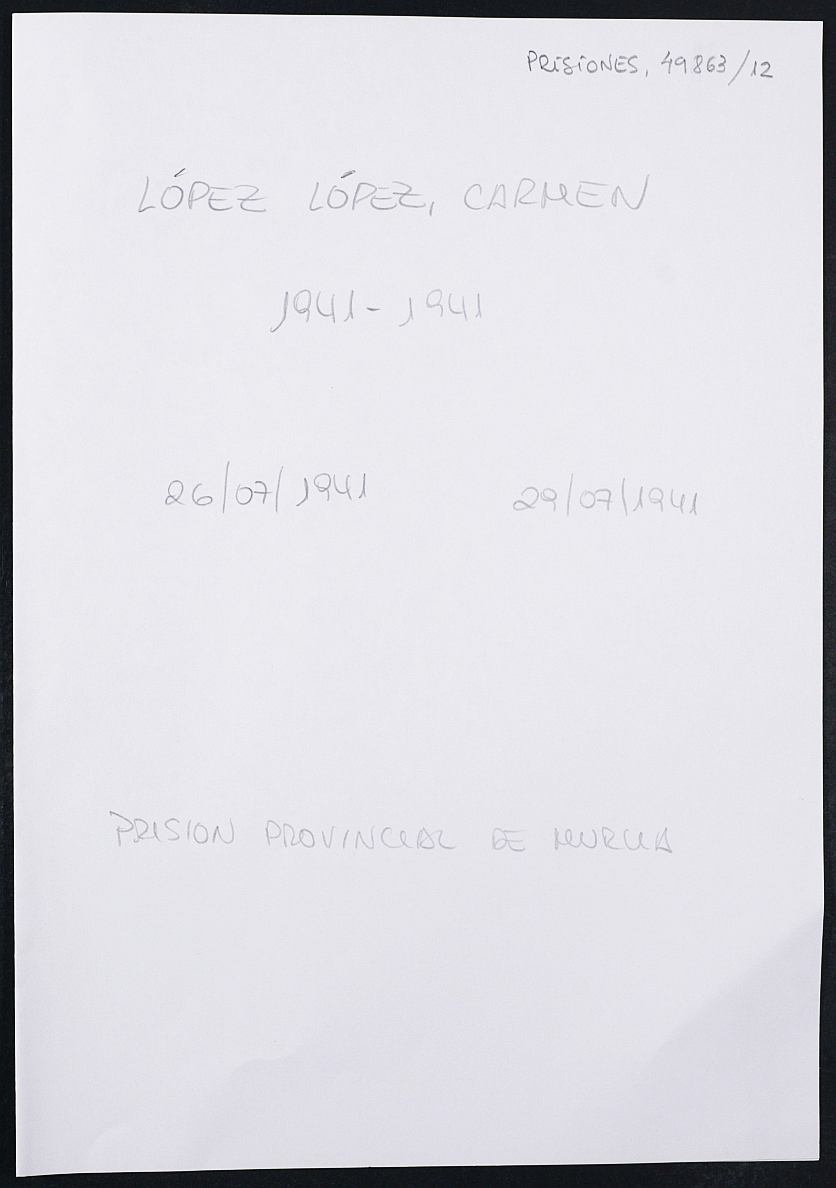 PRISIONES, 49863/12
LÓPEZ LÓPEZ, CARMEN
1941-1941
26/07/1941 29/07/1941
PRISION PROVINCIAL DE MURCIA